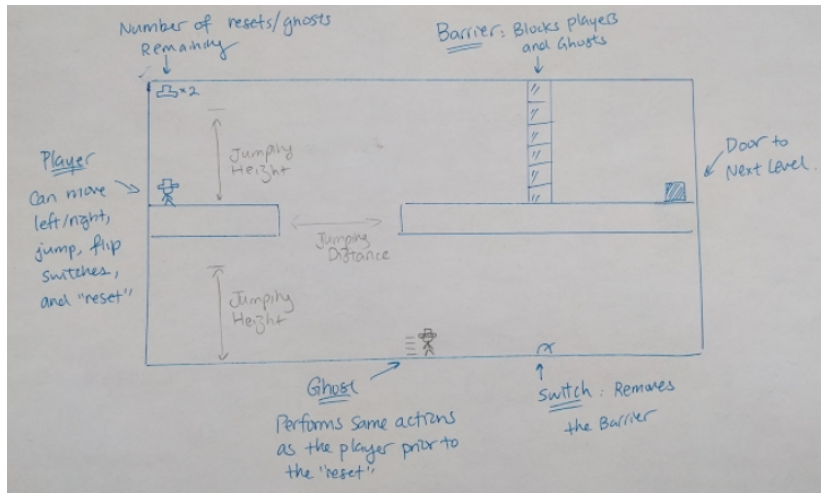 Number of resets/ghosts
Remaining
x2
Barrier: Blocks players
and Ghosts
Player
Can move
left/right,
jump, flip
switches,
and "reset"
Jumping
Height
Door to
Next Level.
Jumping
Distance
Jumping
Height
Ghost
Performs same actions
as the player prior to
the "reset".
Switch: Removes
the Barrier